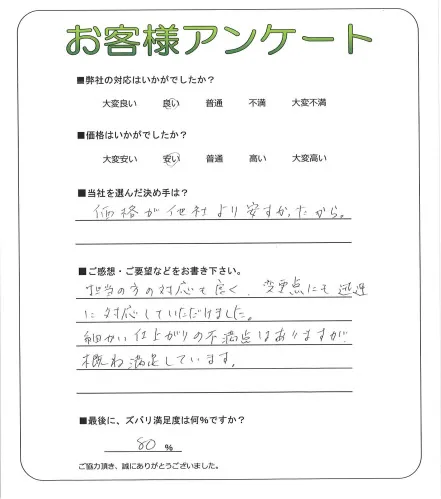 お客様アンケート
■弊社の対応はいかがでしたか？
大変良い 良い 普通 不満 大変不満
■価格はいかがでしたか？
大変安い 安い 普通 高い 大変高い
■当社を選んだ決め手は？
価格が他社より安すかったから。
■ご感想・ご要望などをお書き下さい。
担当の方の対応も良く、変更点にも迅速
に対応していただけました。
細かい仕上がりの不満点はありますが
概ね満足しています。
■最後に、ズバリ満足度は何%ですか？
80 %
ご協力頂き、誠にありがとうございました。